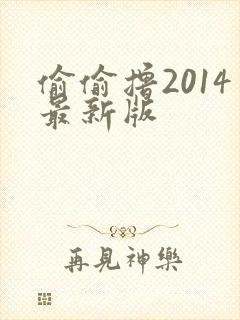 偷偷撸2014
最新版
再見神樂